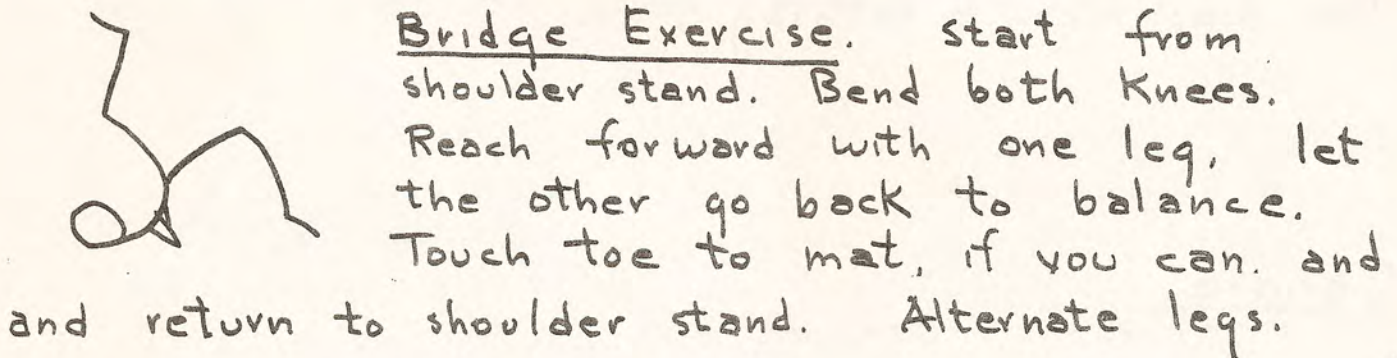 Bridge Exercise. start from
shoulder stand. Bend both Knees.
Reach forward with one leg, let
the other go back to balance.
Touch toe to mat, if you can. and
and return to shoulder stand. Alternate legs.